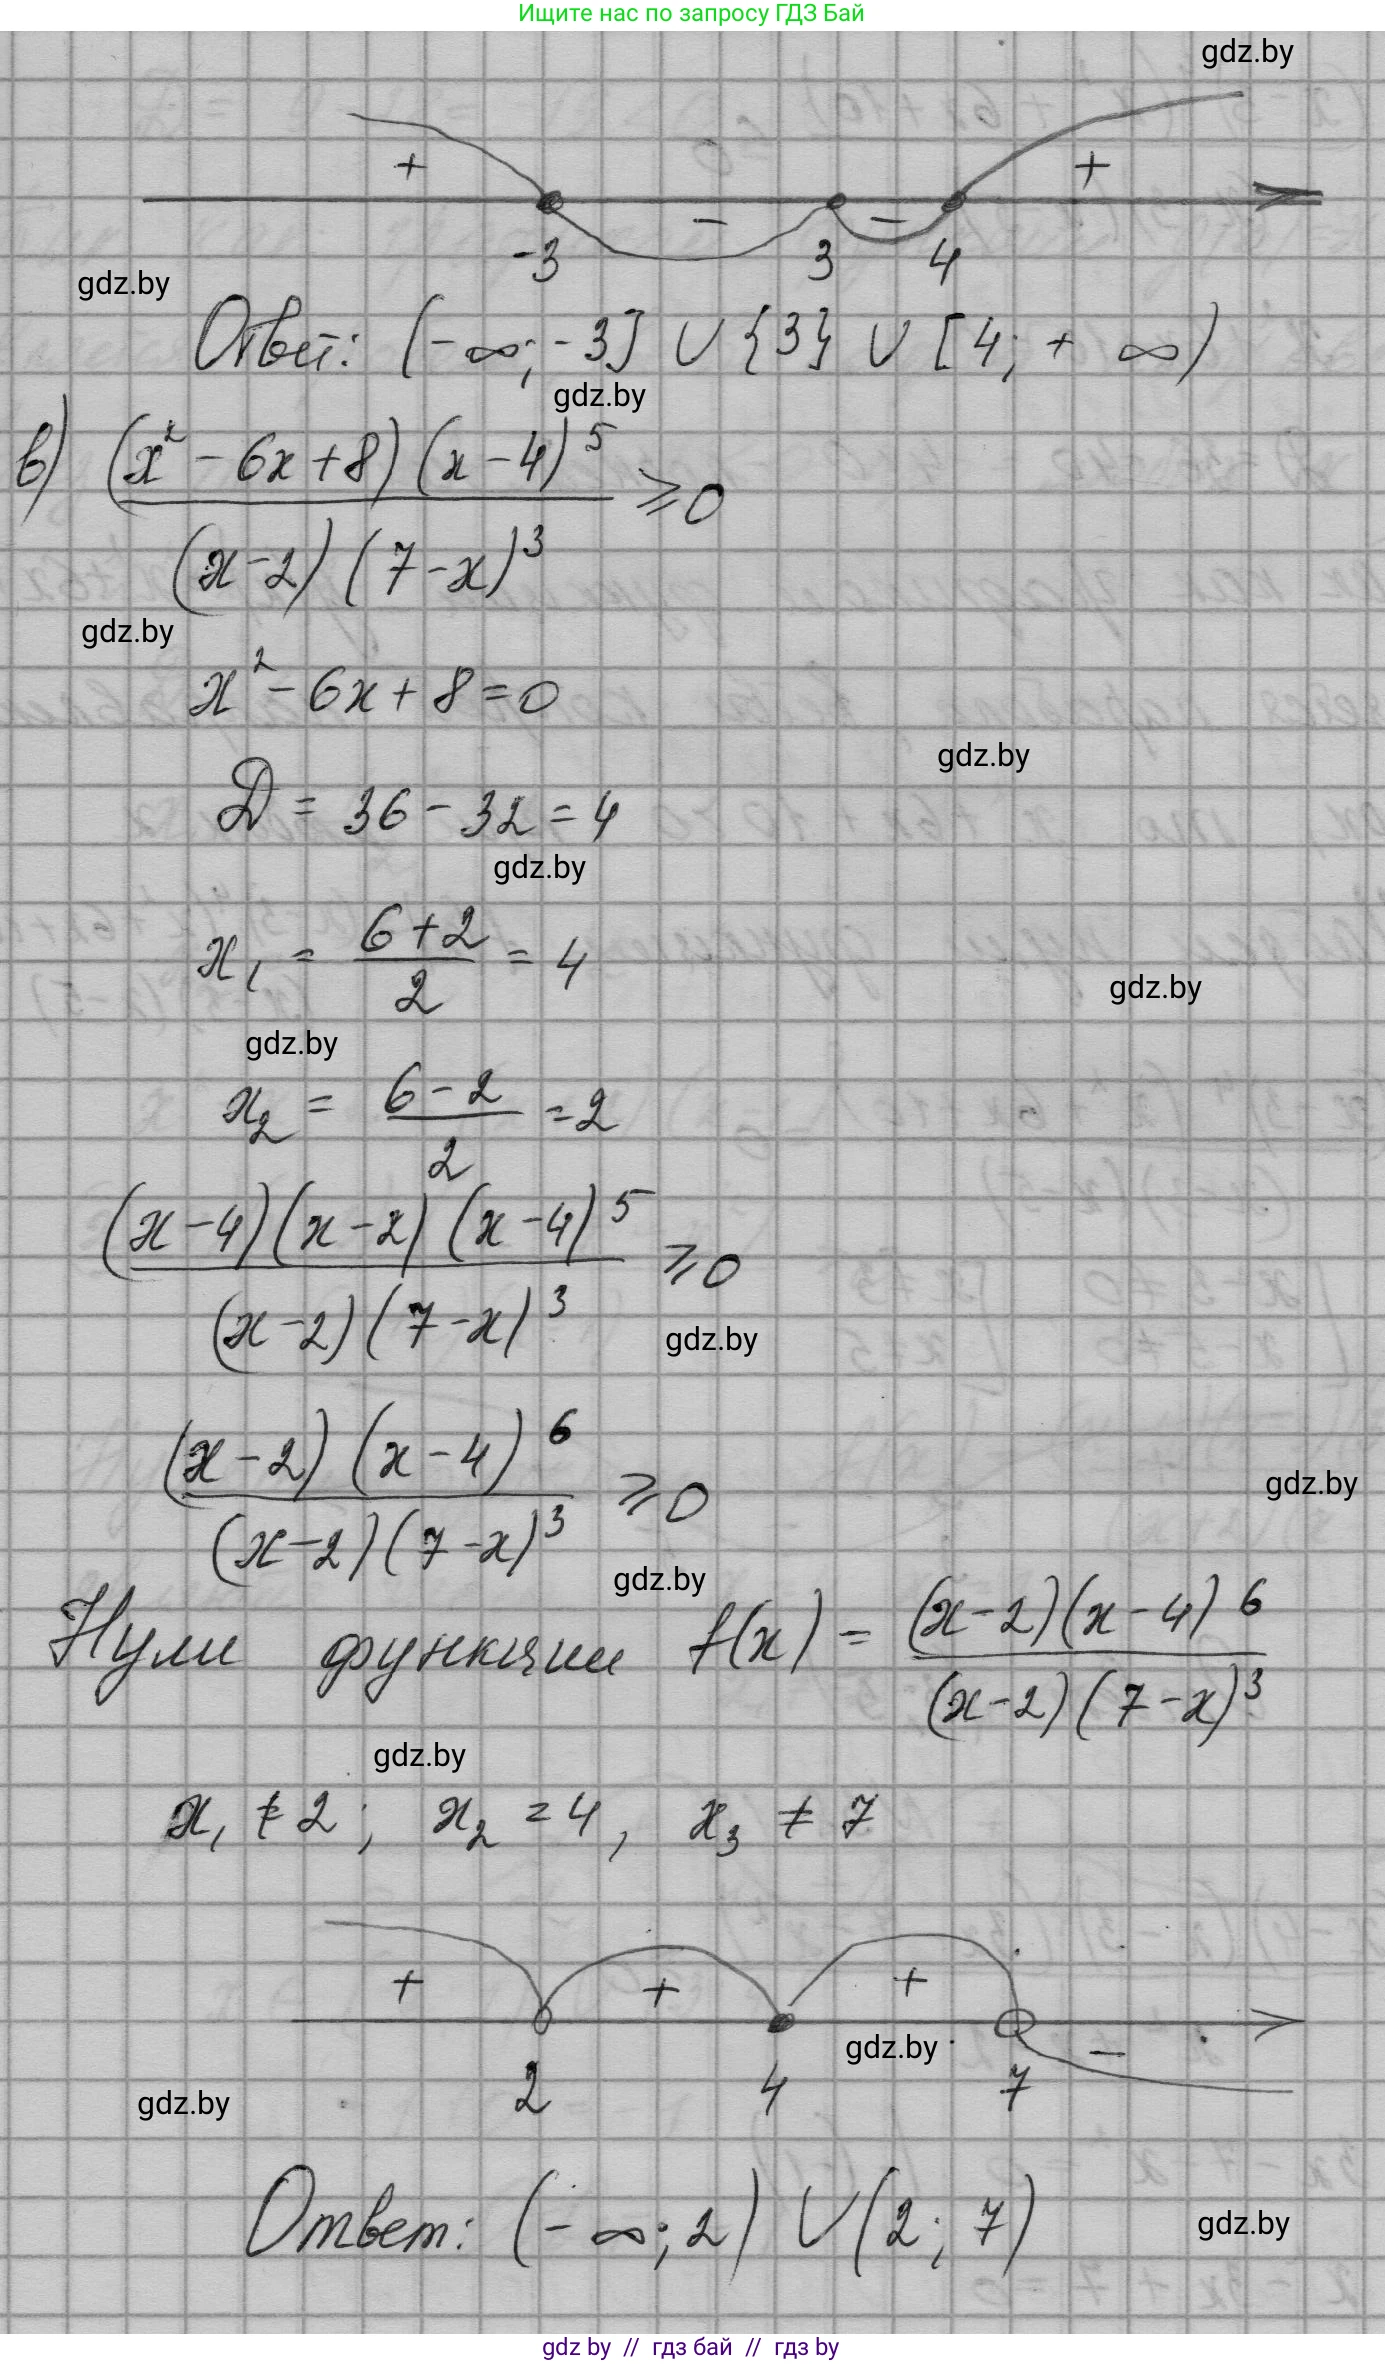 Ищите нас по запросу ГДЗ Бай
gdz.by
+ − − +
-3 3 4
gdz.by
Ответ: (-∞; -3] ∪ {3} ∪ [4; + ∞)
gdz.by
в) (x² - 6x + 8) (x - 4)⁵ ≥ 0
(x - 2) (7 - x)³
gdz.by
x² - 6x + 8 = 0
gdz.by
D = 36 - 32 = 4
gdz.by
x₁ = (6 + 2)/2 = 4
gdz.by
gdz.by
x₂ = (6 - 2)/2 = 2
(x - 4) (x - 2) (x - 4)⁵ ≥ 0
(x - 2) (7 - x)³
gdz.by
(x - 2) (x - 4)⁶ ≥ 0
(x - 2) (7 - x)³
gdz.by
gdz.by
Нули функции f(x) = (x - 2)(x - 4)⁶
(x - 2) (7 - x)³
gdz.by
x₁ ≠ 2; x₂ = 4, x₃ ≠ 7
+ + + −
gdz.by
2 4 7
gdz.by
Ответ: (-∞; 2) ∪ (2; 7)
gdz.by
gdz by // гдз бай // гдз by